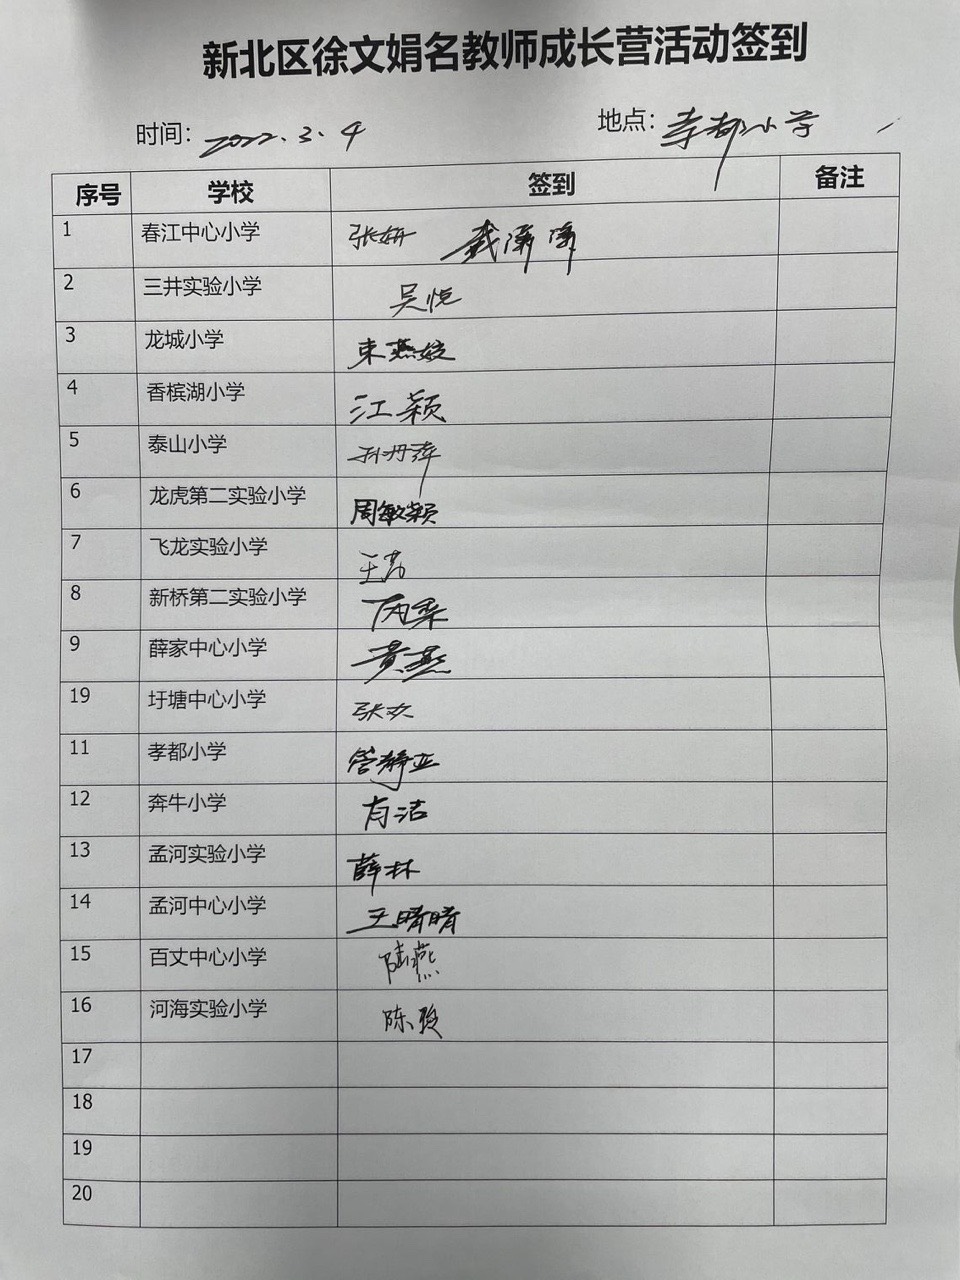 新北区徐文娟名教师成长营活动签到
时间: 2022.3.4 地点: 孝都小学
序号 学校 签到 备注
1 春江中心小学 张妍
2 三井实验小学 吴悦
3 龙城小学 束燕姣
4 香槟湖小学 江颖
5 泰山小学 孙丹萍
6 龙虎第二实验小学 周敏颖
7 飞龙实验小学
8 新桥第二实验小学
9 薛家中心小学 黄燕
19 圩塘中心小学 张欢
11 孝都小学 管静亚
12 奔牛小学 肖洁
13 孟河实验小学 薛林
14 孟河中心小学 王晴晴
15 百丈中心小学 陆燕
16 河海实验小学
17
18
19
20